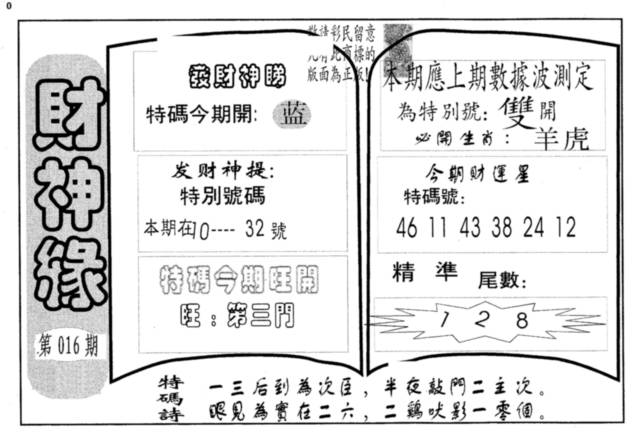 0
敬请彩民留意
凡有此商標的
版面為正版!
財神緣
第016期
發財神睇
特碼今期開: 蓝
发财神提:
特別號碼
本期在10---- 32 號
特碼今期旺開
旺:第三門
本期應上期數據波測定
為特別號: 雙 開
必開生肖: 羊虎
今期财運星
特碼號:
46 11 43 38 24 12
精 準 尾數:
1 2 8
特碼詩
一三后到為次臣,半夜敲門二主次。
眼見為實在二六,二鷄吠影一零個。